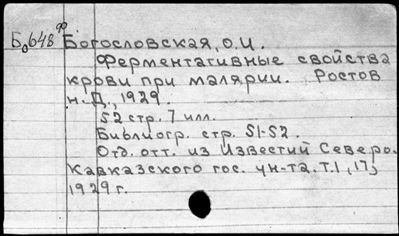 Бо648 ф Богословская, О.И.
Ферментативные свойства
крови при малярии. Ростов
н-Д., 1929.
52 стр. 7 илл.
Библиогр. стр. 51-52.
Отд. отт. из Известий Северо-
Кавказского гос. ун-та. Т.1, 17,
1929 г.